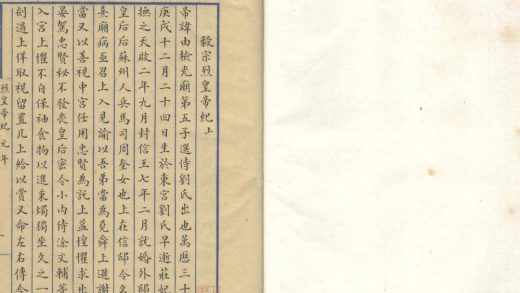 毅宗烈皇帝紀上
帝諱由檢光廟第五子選侍劉氏出也萬曆三十
庚戌十二月二十四日生於東宮劉氏早逝莊妃
撫之天啟二年九月封信王七年二月就婚外邸
皇后后蘇州人兵馬司周奎女也上在信邸令名
熹廟病亟召上入見諭以吾弟當為堯舜上遜謝
當又以善視中宮任用忠賢為託上益惶懼求出
晏駕忠賢秘不發喪皇后密令小內侍涂文輔等
入宮上懼不自保袖食物以進秉燭獨坐久之一
劍過上佯取視留置几上給以賞又命左右傳令
烈皇帝紀 元年